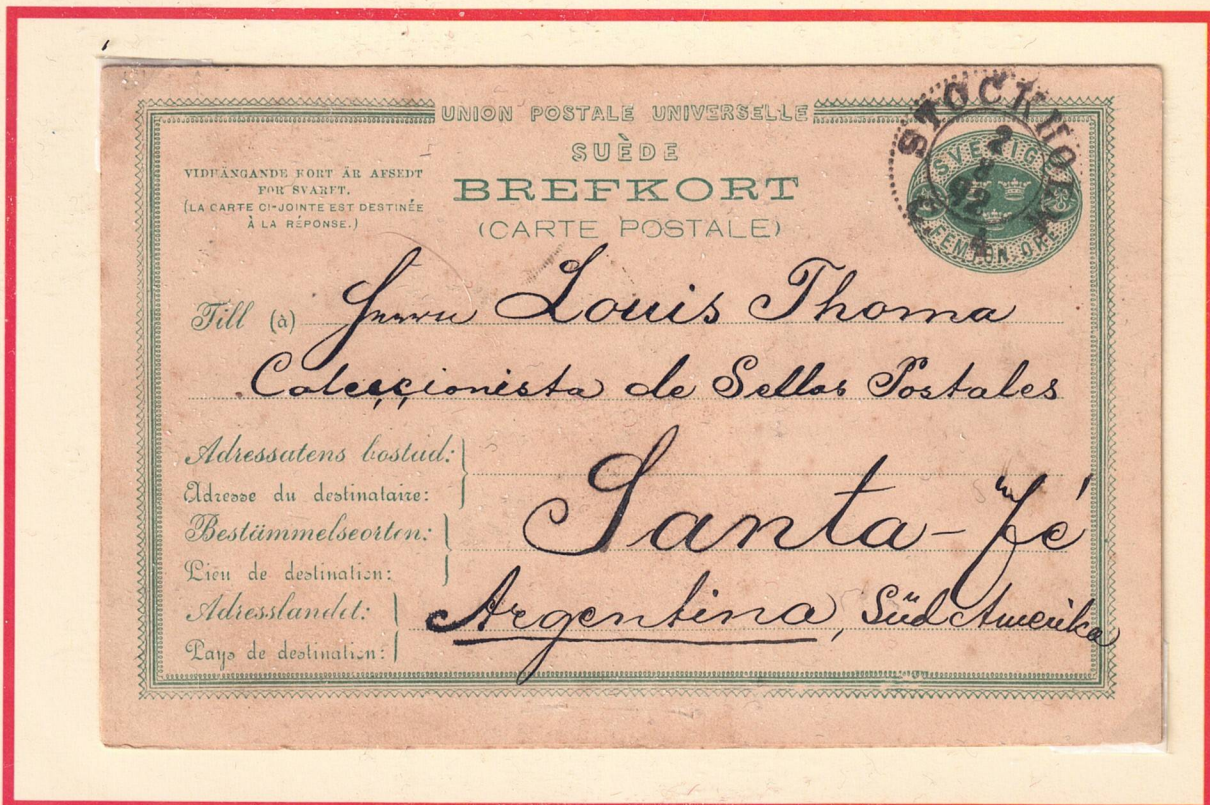 UNION POSTALE UNIVERSELLE
SUÈDE
BREFKORT
(CARTE POSTALE)
VIDHÄNGANDE KORT ÄR AFSEDT
FÖR SVARET.
(LA CARTE CI-JOINTE EST DESTINÉE
À LA RÉPONSE.)
STOCKHOLM
2
92
SVERIGE
FEMTON ÖRE
Till (à) Herrn Louis Thoma
Coleccionista de Sellos Postales
Adressatens bostad:
Adresse du destinataire:
Santa-Fé
Bestämmelseorten:
Lieu de destination:
Adresslandet: Argentina, Süd Amerika
Pays de destination: